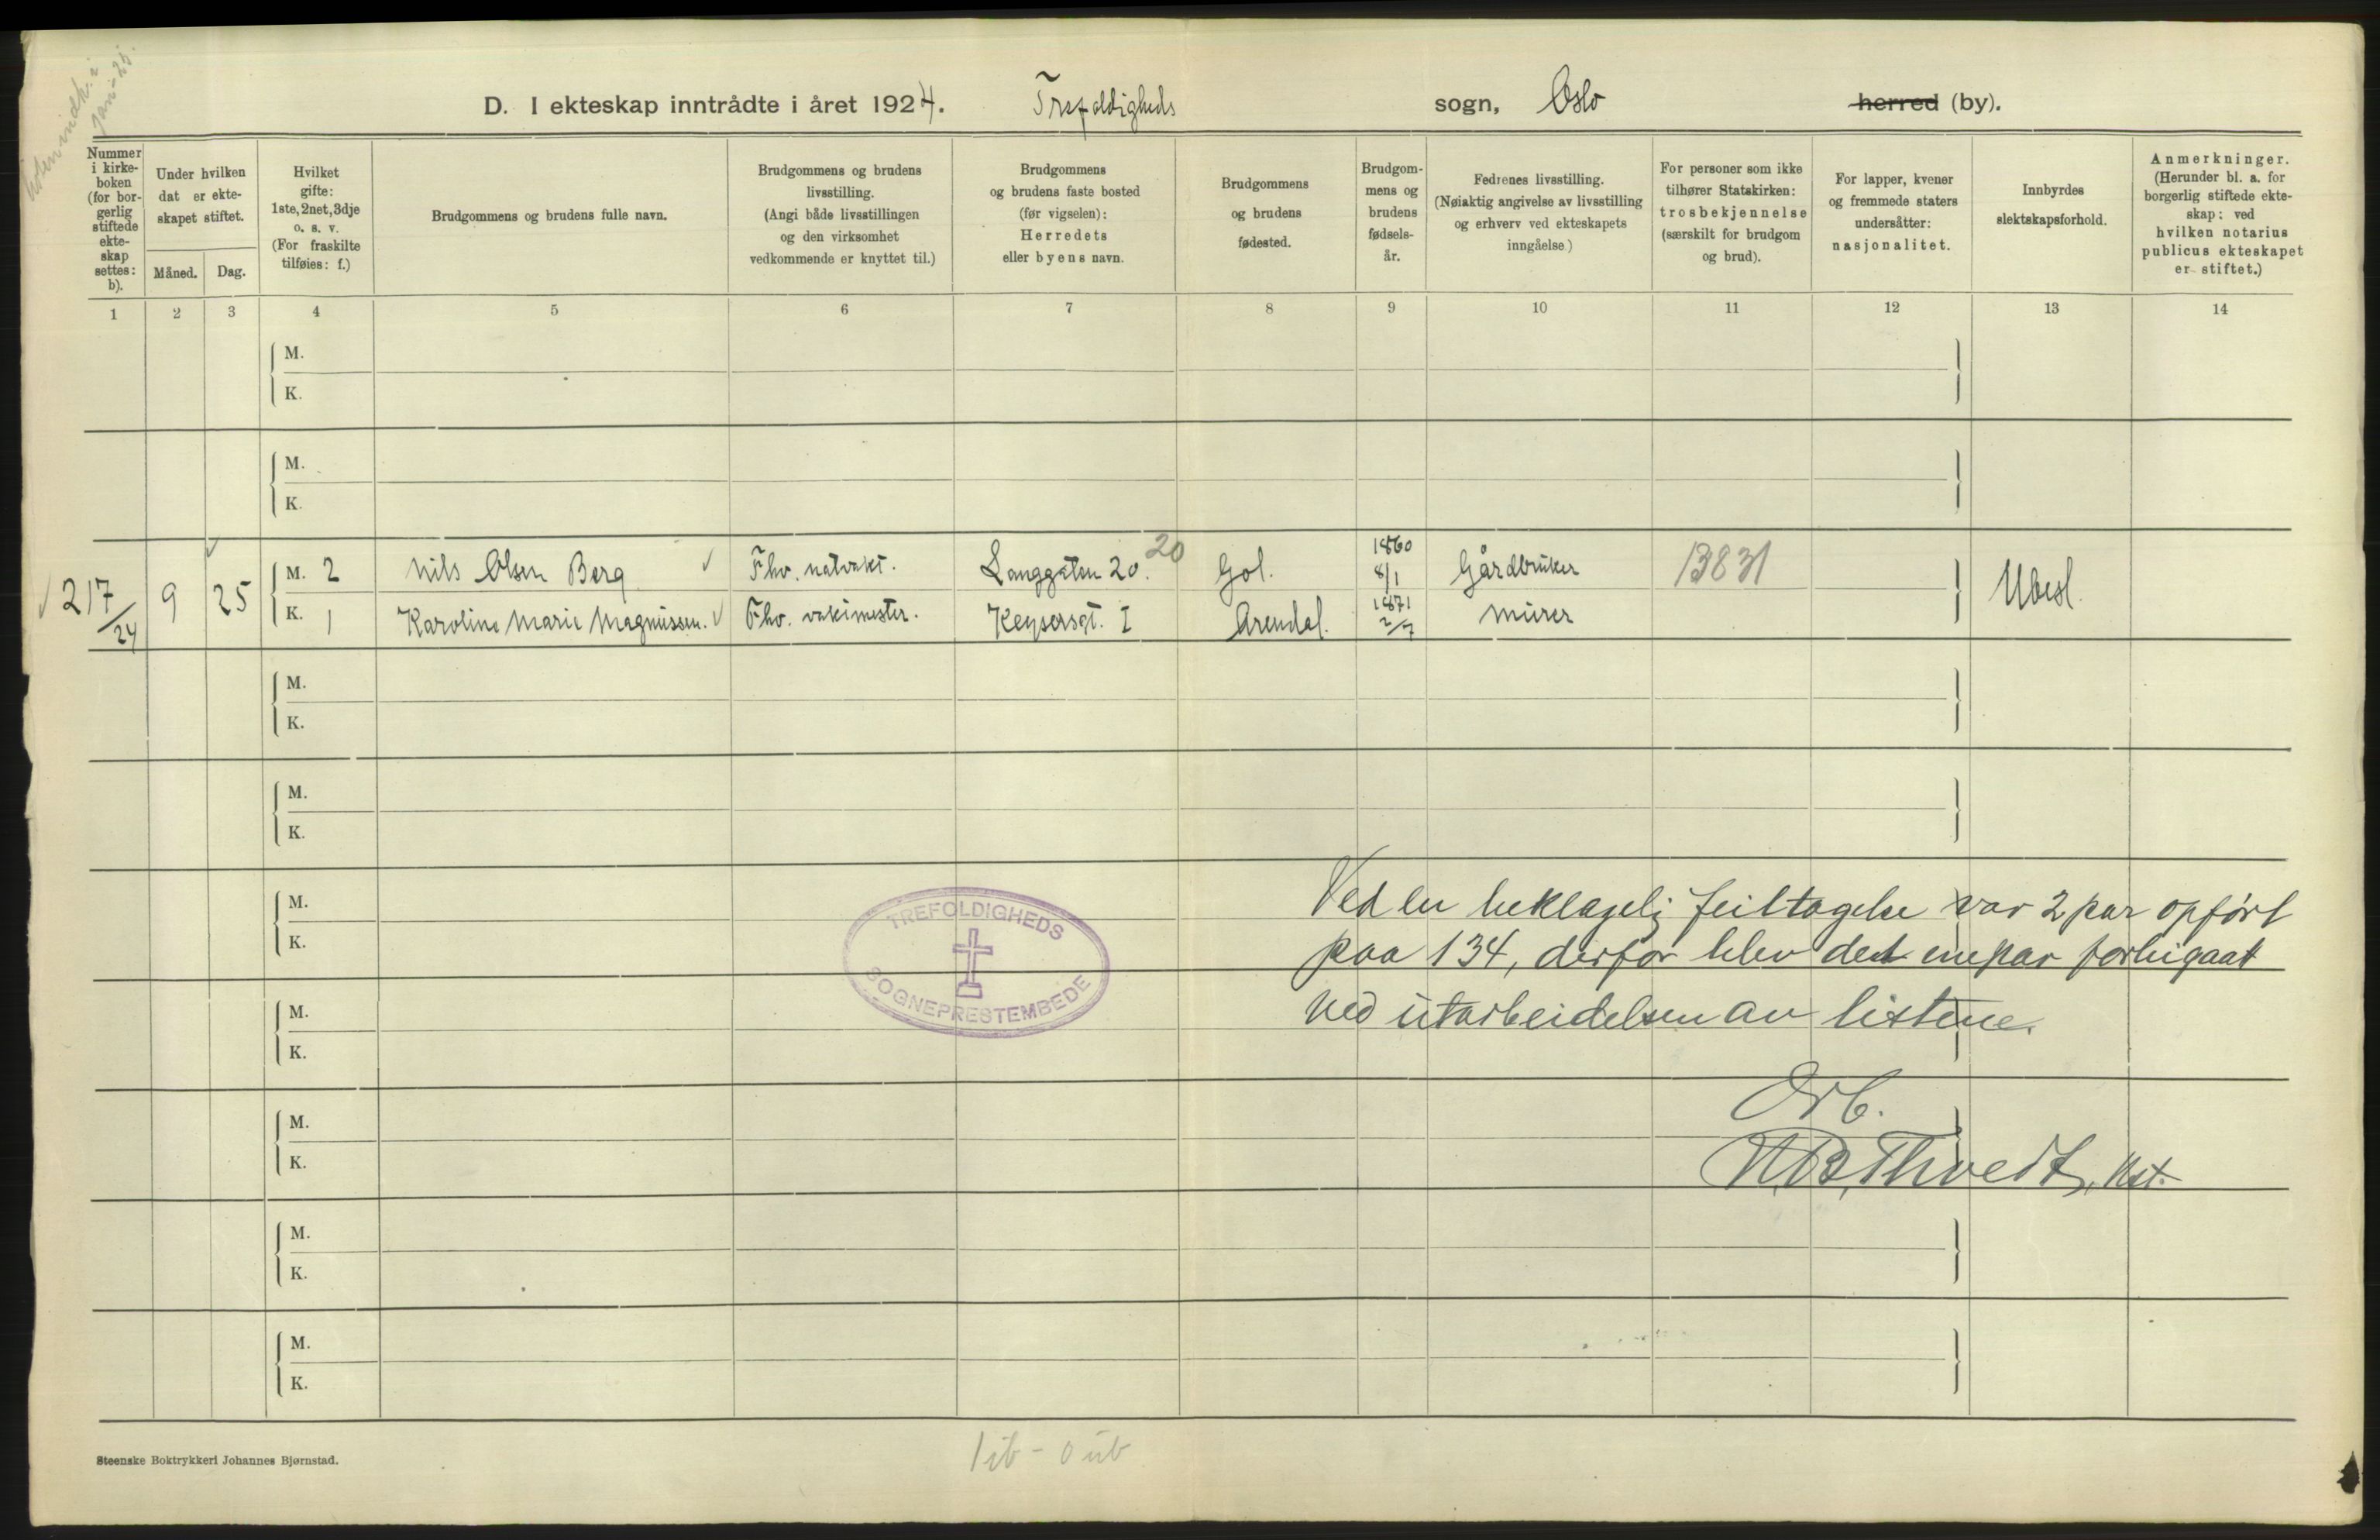 jan-25.
D. I ekteskap inntrådte i året 1924. Trefoldigheds sogn, Oslo herred (by).
Nummer i kirke- boken (for bor- gerlig stiftede ekte- skap settes: b).
Under hvilken dat er ekte- skapet stiftet.
Måned. Dag.
Hvilket gifte: 1ste, 2net, 3dje o. s. v. (For fraskilte tilføies: f.)
Brudgommens og brudens fulle navn.
Brudgommens og brudens livsstilling. (Angi både livsstillingen og den virksomhet vedkommende er knyttet til.)
Brudgommens og brudens faste bosted (før vigselen): Herredets eller byens navn.
Brudgommens og brudens fødested.
Brudgom- mens og brudens fødsels- år.
Fedrenes livsstilling. (Nøiaktig angivelse av livsstilling og erhverv ved ekteskapets inngåelse.)
For personer som ikke tilhører Statskirken: trosbekjennelse (særskilt for brudgom og brud).
For lapper, kvener og fremmede staters undersåtter: nasjonalitet.
Innbyrdes slektskapsforhold.
Anmerkninger. (Herunder bl. a. for borgerlig stiftede ekte- skap: ved hvilken notarius publicus ekteskapet er stiftet.)
1 2 3 4 5 6 7 8 9 10 11 12 13 14
M.
K.
M.
K.
217/24 9 25 M. 2 Nils Olsen Berg Fhv. natvakt. Langgaten 20. 20 Gol. 1860 8/1 Gårdbruker 13831 Ubesl.
K. 1 Karoline Marie Magnussen. Fhv. vaktmester. Keysersgt. I Arendal. 1871 2/7 Murer
M.
K.
M.
K.
M.
K.
TREFOLDIGHEDS
SOGNEPRESTEMBEDE
Ved en beklagelig feiltagelse var 2 par opført
paa 134, derfor blev det ene par forbigaat
ved utarbeidelsen av listene.
M.
K.
Erb.
M.
K.
N.B. Thvedt, kst.
M.
K.
M.
K.
Steenske Boktrykkeri Johannes Bjørnstad.
1 ib - 0 ub